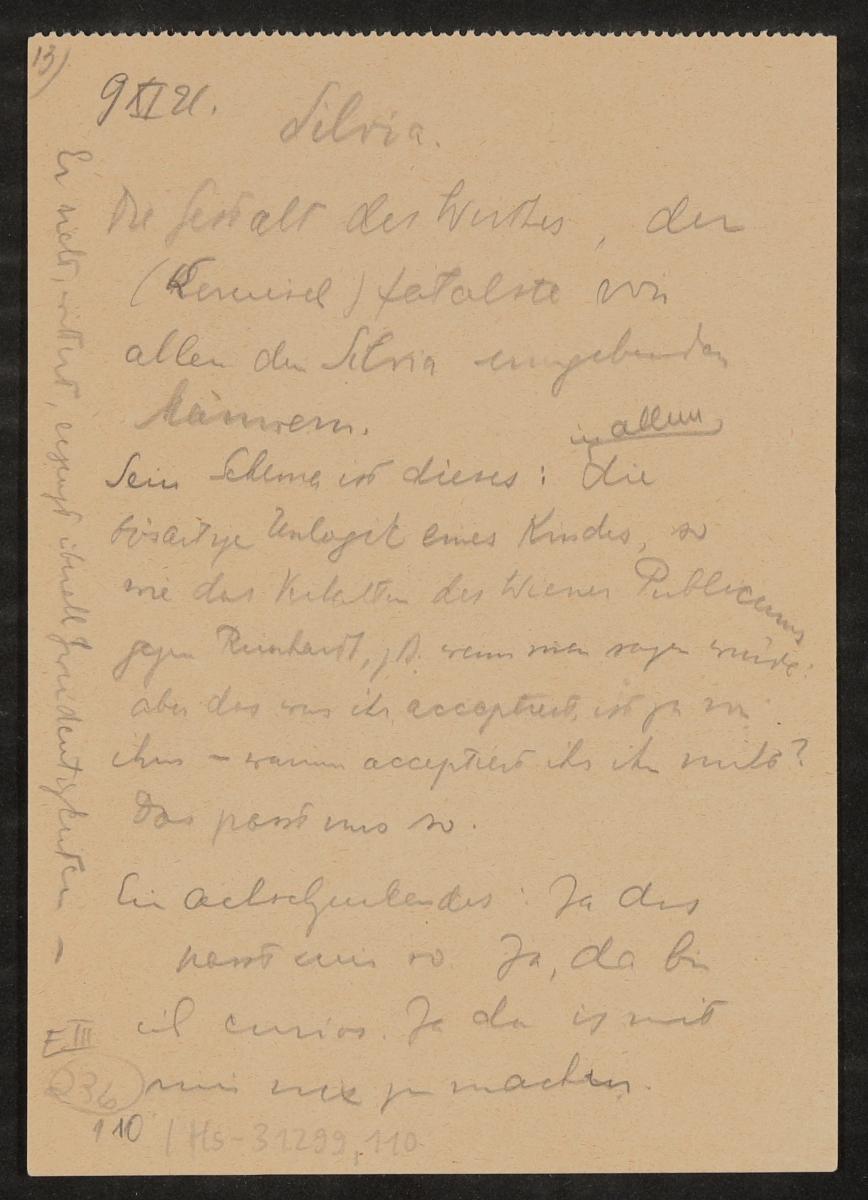 13)
9 XI 21.
Silvia.
Die Gestalt des Wirthes, der
( ) fatalste von
allen den Silvia umgebenden
Männern.
in allem
Sein Schema ist dieses: die
bösartige Unlogik eines Kindes, so
wie das Verhalten des Wiener Publicums
gegen Reinhardt, z.B. wenn man sagen würde:
aber das was ihr acceptiert, ist ja von
ihm – warum acceptiert ihr ihn nicht?
Das passt uns so.
Ein achselzuckendes: Ja das
passt mir so. Ja, da bin
ich curios. Ja da is mit
mir nix zu machen.
Er sieht, wittert, erzeugt überall Zweideutigkeiten –
E III
236
110 / Hs-31299,110